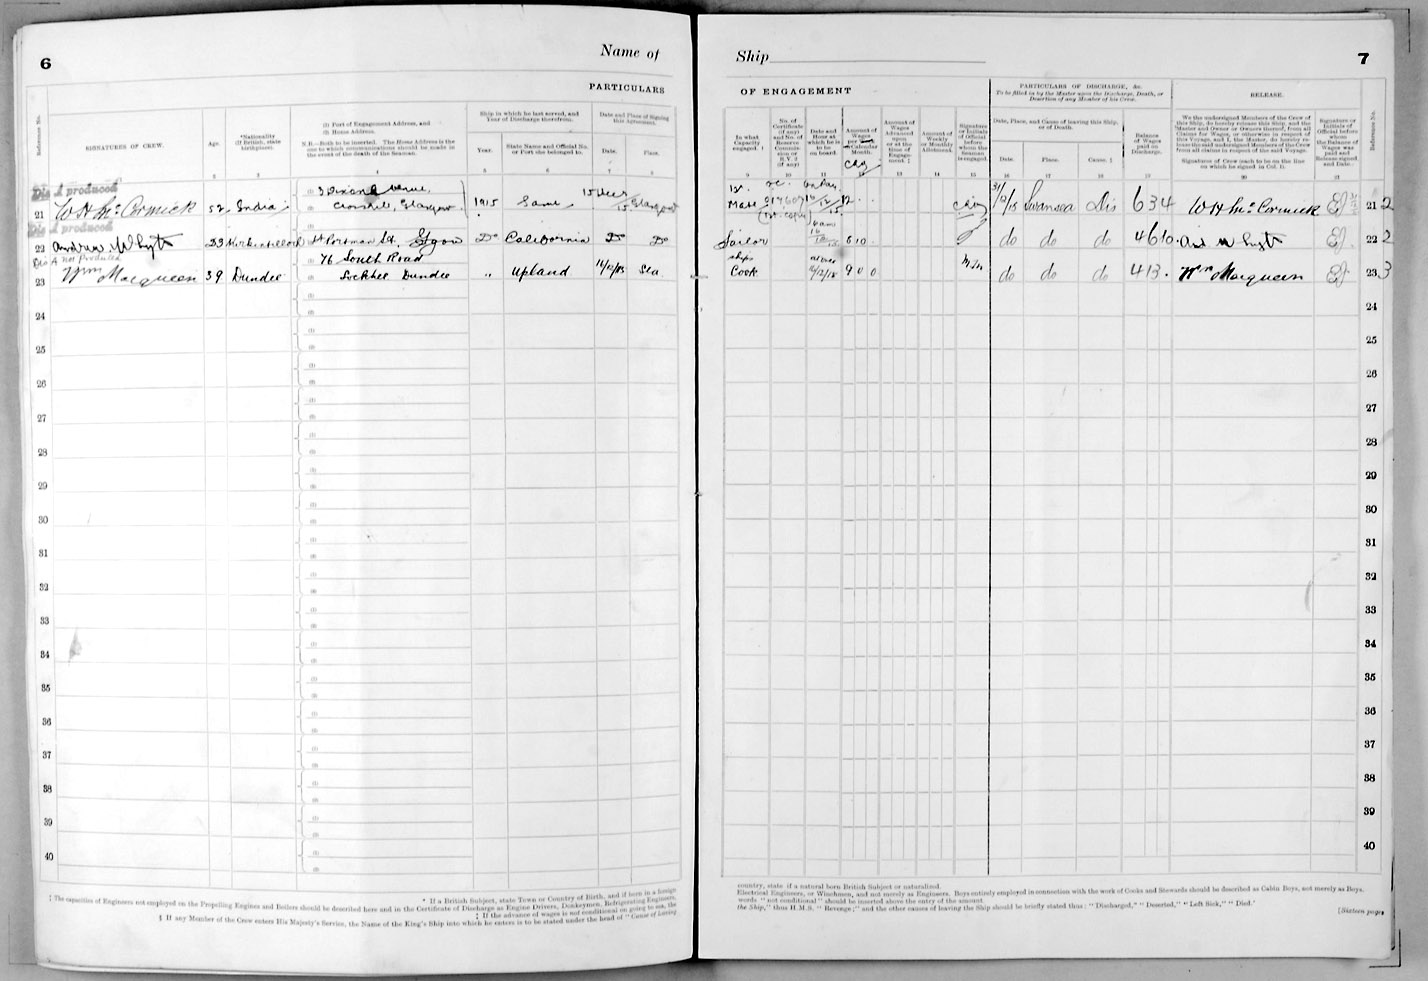 6
Name of
PARTICULARS
Reference No.
SIGNATURES OF CREW.
Age.
*Nationality
(If British, state
birthplace).
(1) Port of Engagement Address, and
(2) Home Address.
N.B.—Both to be inserted. The Home Address is the
one to which communications should be made in
the event of the death of the Seaman.
Ship in which he last served, and
Year of Discharge therefrom.
Year.
State Name and Official No.
or Port she belonged to.
Date and Place of Signing
this Agreement.
Date.
Place.
2 3 4 5 6 7 8
Dis A produced
21 W H McCormick 52 India
(1) 3 Dixon Avenue,
(2) Crosshill, Glasgow
1915 Same 15 Decr 15 Glasgow
Dis A produced
22 Andrew Whyte 23 Kirkintilloch Portman St. Glasgow Do California Do Do
Dis A not Produced
23 Wm Macqueen 39 Dundee
76 South Road
Lochee Dundee
" Upland 16/12/15 Sea
24
25
26
27
28
29
30
31
32
33
34
35
36
37
38
39
40
* If a British Subject, state Town or Country of Birth, and if born in a foreign
‡ The capacities of Engineers not employed on the Propelling Engines and Boilers should be described here and in the Certificate of Discharge as Engine Drivers, Donkeymen, Refrigerating Engineers,
‡ If the advance of wages is not conditional on going to sea, the
§ If any Member of the Crew enters His Majesty's Service, the Name of the King's Ship into which he enters is to be stated under the head of "Cause of leaving
Ship
7
OF ENGAGEMENT
PARTICULARS OF DISCHARGE, &c.
To be filled in by the Master upon the Discharge, Death, or
Desertion of any Member of his Crew.
RELEASE.
In what
Capacity
engaged. †
No. of
Certificate
(if any)
and No. of
Reserve
Commis-
sion or
R.V. 2
(if any)
Date and
Hour at
which he is
to be
on board.
Amount of
Wages
per
Calendar
Month.
Amount of
Wages
Advanced
upon
or at the
time of
Engage-
ment. ‡
Amount of
Weekly
or Monthly
Allotment.
Signature
or Initials
of Official
before
whom the
Seaman
is engaged.
Date, Place, and Cause of leaving this Ship,
or of Death.
Date.
Place.
Cause. ‡
Balance
of Wages
paid on
Discharge.
We the undersigned Members of the Crew of
this Ship, do hereby release this Ship, and the
Master and Owner or Owners thereof, from all
Claims for Wages or otherwise in respect of
this Voyage, and I, the Master, do hereby re-
lease the said undersigned Members of the Crew
from all claims in respect of the said Voyage.
Signature of Crew (each to be on the line
on which he signed in Col. 1).
Signature or
Initials of
Official before
whom
the Balance of
Wages was
paid and
Release signed,
and Date.
Reference No.
9 10 11 12 13 14 15 16 17 18 19 20 21
1st
Mate 12 31/12/15 Swansea Dis 634 W H McCormick EJ 21 2
Sailor 6 10 do do do 4610 And Whyte EJ 22 2
Ships
Cook 16/12/15 9 0 0 do do do 413 Wm Macqueen EJ 23 3
24
25
26
27
28
29
30
31
32
33
34
35
36
37
38
39
40
country, state if a natural born British Subject or naturalized.
Electrical Engineers, or Winchmen, and not merely as Engineers. Boys entirely employed in connection with the work of Cooks and Stewards should be described as Cabin Boys, not merely as Boys.
words "not conditional" should be inserted above the entry of the amount.
the Ship," thus H.M.S. "Revenge;" and the other causes of leaving the Ship should be briefly stated thus: "Discharged," "Deserted," "Left Sick," "Died."
[Sixteen pages